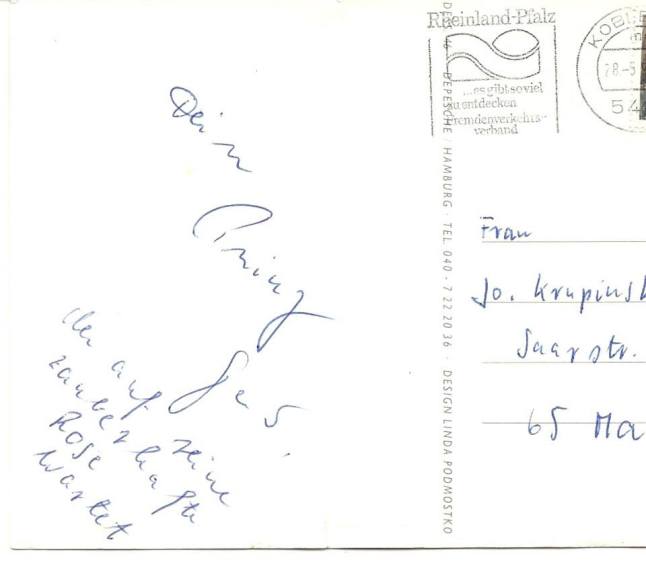 Dein
Prinz
der auf seine
zauberhafte
Rose
wartet
Rheinland-Pfalz
...es gibt soviel
zu entdecken
Fremdenverkehrs-
verband
KOBLE
28.-5
54
DEPESCHE · HAMBURG · TEL. 040 - 7 22 20 36 · DESIGN LINDA PODMOSTKO
Frau
Jo. Krupinsk
Saarstr.
65 Ma